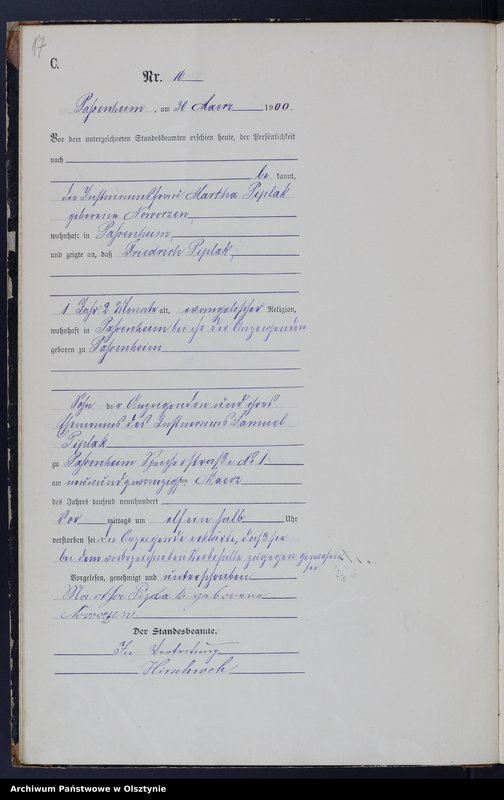 17
C.
Nr. 10
Passenheim, am 30 Maerz 1900.
Vor dem unterzeichneten Standesbeamten erschien heute, der Persönlichkeit
nach
be kannt,
die Instmannsfrau Martha Piplak
geborene Noworzen
wohnhaft in Passenheim
und zeigte an, daß Friedrich Piplak
1 Jahr 2 Monate alt, evangelischer Religion,
wohnhaft in Passenheim bei ihr der Anzeigenden
geboren zu Passenheim
Sohn der Anzeigenden und ihres
Ehemanns des Instmanns Samuel
Piplak
zu Passenheim Speicherstraße No 1
am neunundzwanzigsten Maerz
des Jahres tausend neunhundert
Vor mittags um elf ein halb Uhr
verstorben sei die Anzeigende erklärte, daß sie
bei dem vorbezeichneten Sterbefalle zugegen gewesen
sei
Vorgelesen, genehmigt und unterschrieben
Martha Piplak geborene
Noworzen
Der Standesbeamte.
In Vertretung
Archiwum Państwowe w Olsztynie